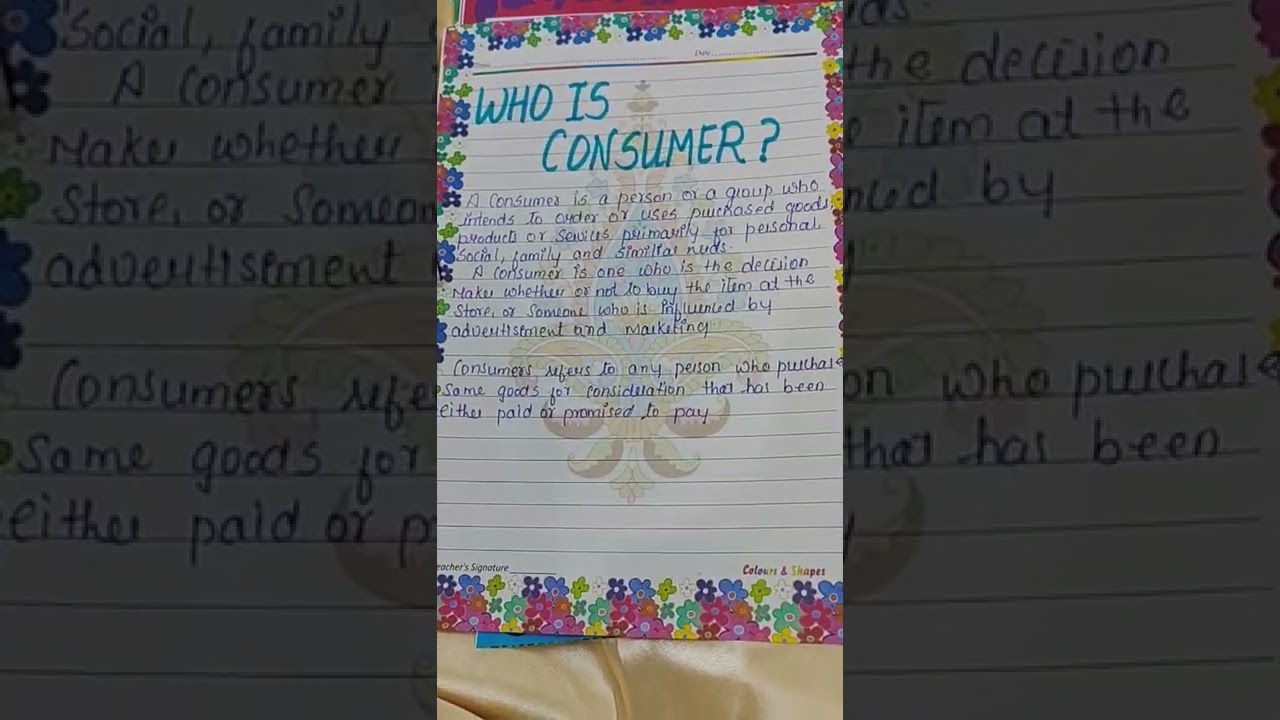 Date
WHO IS
CONSUMER?
A Consumer is a person or a group who
intends to order or uses purchased goods,
products or services primarily for personal,
social, family and similiar needs.
A Consumer is one who is the decision
Maker whether or not to buy the item at the
Store, or Someone who is influenced by
advertisement and Marketing
Consumers refers to any person who purchase
Some goods for consideration that has been
either paid or promised to pay
eacher's Signature
Colours & Shapes